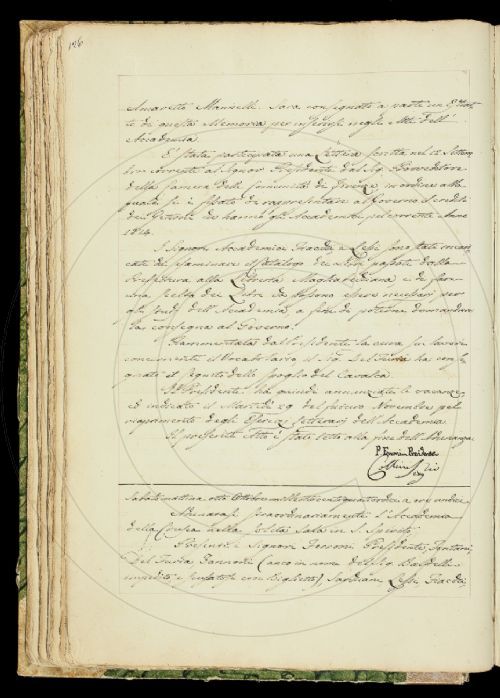 126
Amaretto Mannelli. Sarà consegnato a parte un
to di questa Memoria per inserirsi negli Atti dell'
Accademia.
E' stata partecipata una Lettera scritta nel
corrente al Signor Presidente dal Sig. Provveditore
della Camera delle Comunità di Firenze in ordine alla
quale si è di rappresentare al Governo il credito
che hanno gli Accademici pel corrente Anno
1814.
I Signori Accademici Fiacchi, e Lessi sono stati incari-
cati di esaminare il Catalogo dei Libri passati dalla
Prefettura alla Libreria Magliabechiana e di far
una scelta dei Libri che possono essere necessari per
gli Studj dell'Accademia, a fine di poterne domandare
la consegna al Governo.
Rammentata dal Presidente la cura di lavorar
concernenti il Vocabolario il Sig. Del Furia ha conse-
gnato il seguito dello spoglio del Cavalca.
Il Presidente ha quindi annunziate le vacanze,
ed indicato il Martedì 29 del futuro Novembre pel
riaprimento degli Esercizj Letterarj dell'Accademia.
Il presente Atto è stato letto alla fine dell'Adunanza.
P. Ferroni Presidente
Sabato mattina otto Ottobre milleottocentoquattordici a ore undici
Adunarasi straordinariamente l'Accademia
della Crusca nella solita Sala in S. Spirito.
Presenti i Signori Ferroni Presidente, Fontani,
Del Furia, Zannoni (anco in nome del Sig. Baldelli
impedito, e scusatosi con Biglietto), Sarchiani, Lessi, Fiacchi,